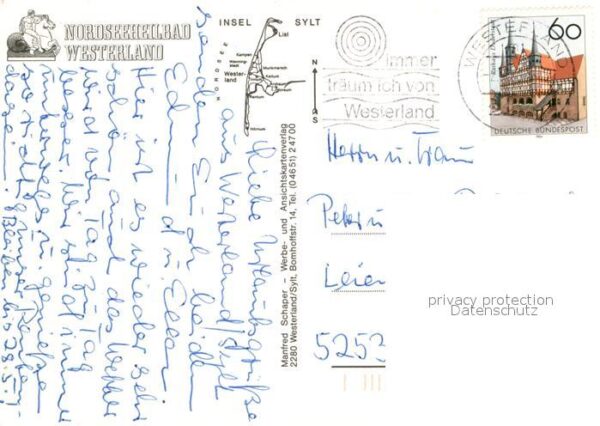 NORDSEEHEILBAD
WESTERLAND
INSEL SYLT
NORDSEE
List
Kampen
Wenning-
stedt
Wester-
land
Munkmarsch
Keitum
Rantum
Hörnum
N
S
immer
träum ich von
Westerland
WESTERLAND
60
DEUTSCHE BUNDESPOST
Manfred Schaper – Werbe- und Ansichtskartenverlag
2280 Westerland/Sylt, Bomhoffstr. 14, Tel. (0 46 51) 2 47 00
Liebe Urlaubsgrüße
aus Westerland/Sylt
senden Euch beiden
Edm. u. Ellen.
Hier ist es wieder sehr
schön und das Wetter
wird von Tag zu Tag
besser. Wir sind immer
unterwegs
Bleiben bis 28.5.
Herrn u. Frau
Peter u
Leier
5253
privacy protection
Datenschutz